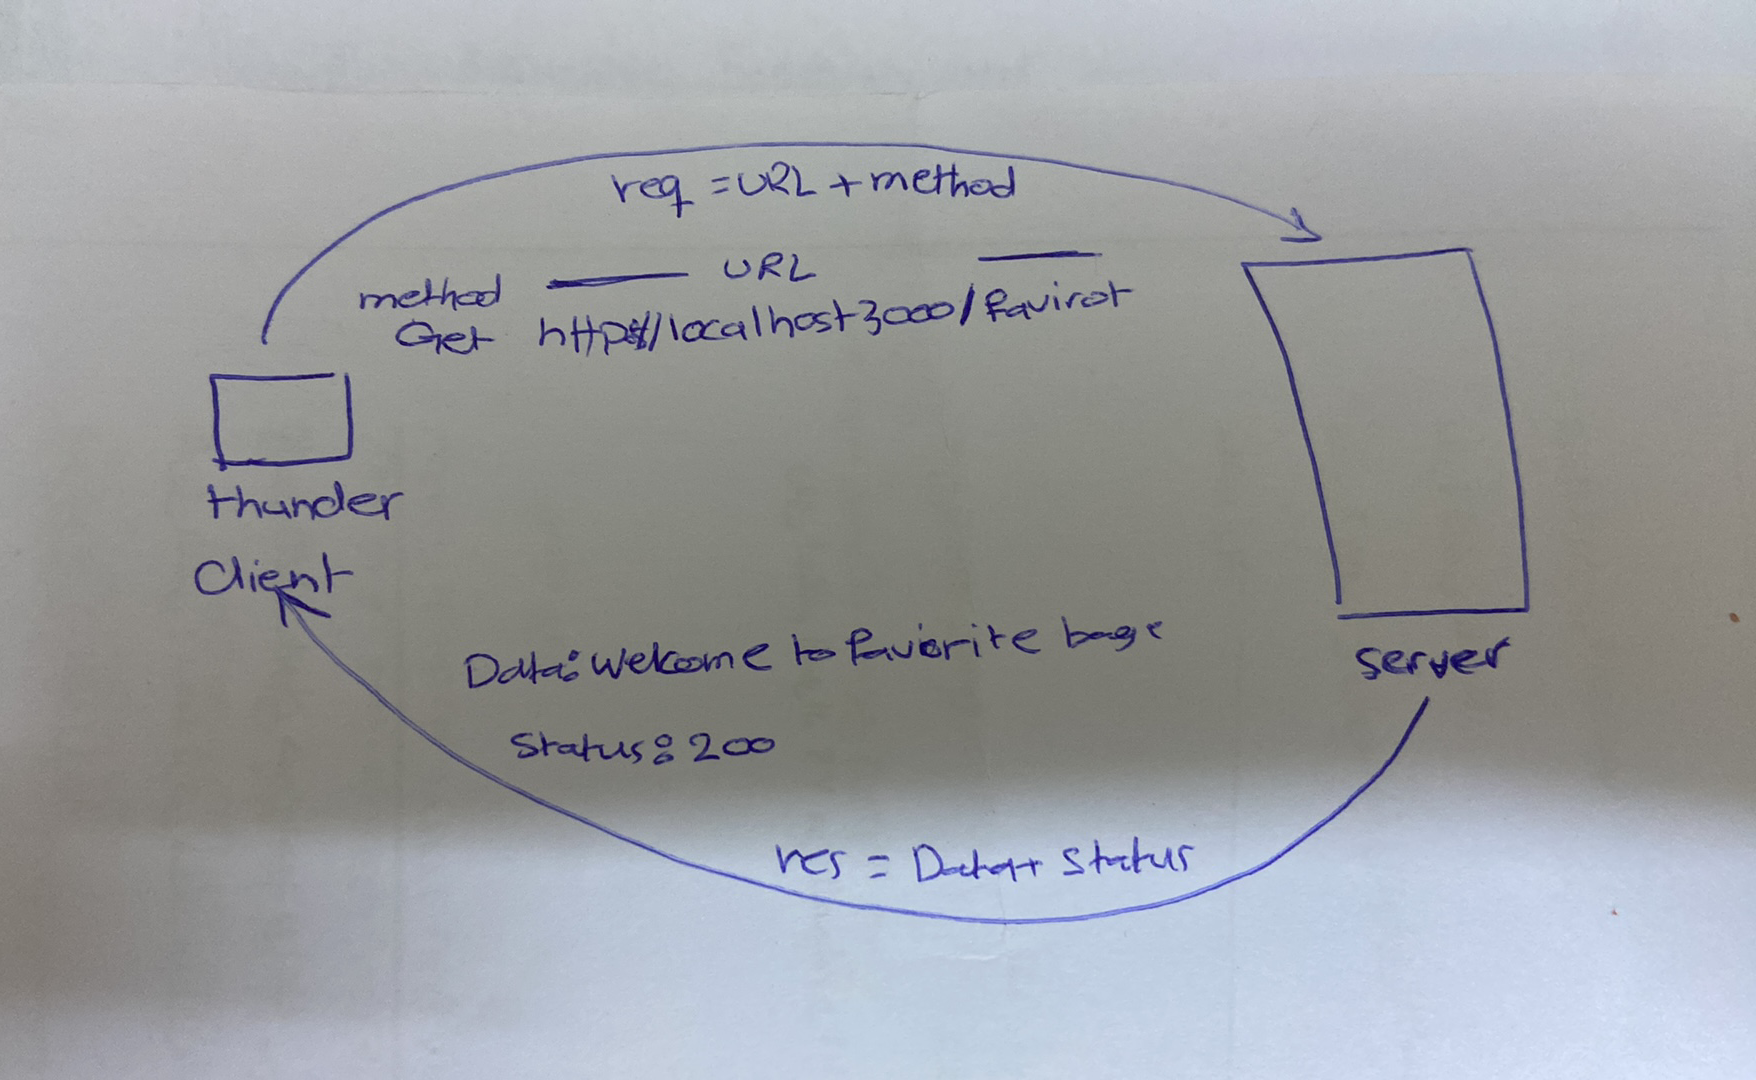 req = URL + method
method URL
Get http://localhost3000/favirot
thunder
Client
Data: Welcome to favorite bage
server
Status: 200
res = Data + Status